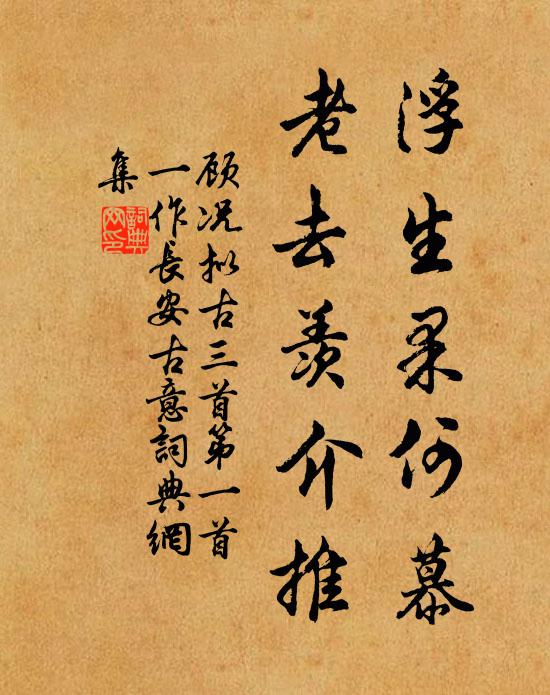 浮生果何慕
老去羡介推
顾况拟古三首第一首
一作長安古意詞典網
集
詞典網印